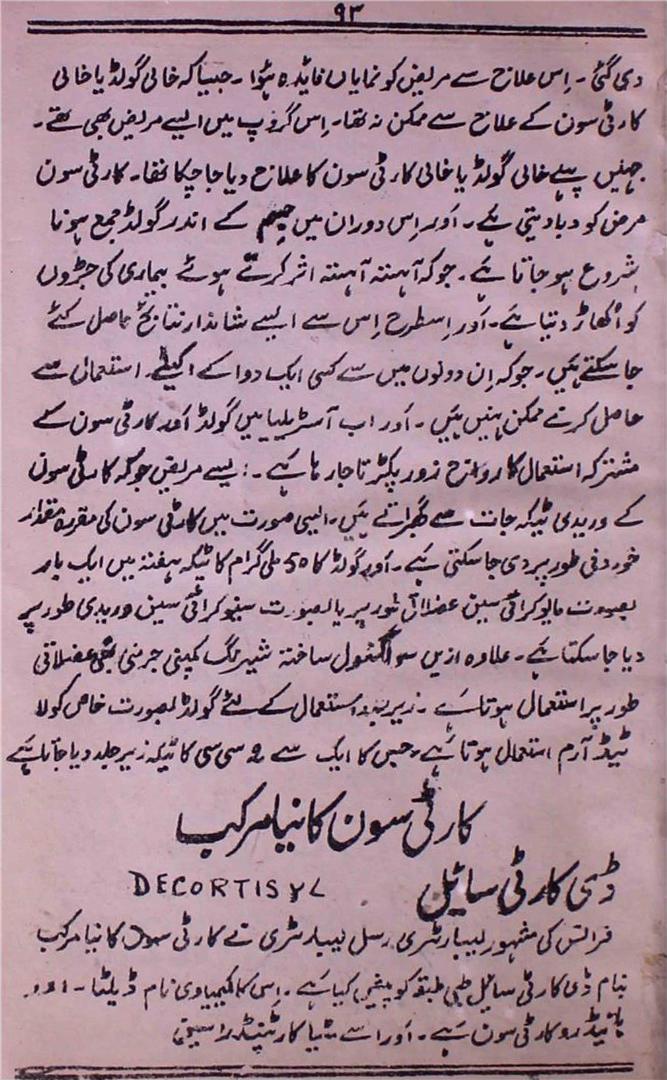 ۹۳
دی گئی ۔ اِس علاج سے مریض کو نمایاں فایٔدہ ہوُا ۔ جیسا کہ خالی گولڈ یا خالی
کارٹی سون کے علاج سے ممکن نہ تھا۔ اِس گروپ میں ایسے مریض بھی تھے ۔
جہنیں پہلے خالی گولڈ یا خالی کارٹی سون کا علاج دیا جاچکا تھا۔ کارٹی سون
مرض کو دبا دیتی ہے۔ اَور اِس دوران میں جسم کے اندر گولڈ جمع ہونا
شروع ہو جاتا ہے ۔ جوکہ آہستہ آہستہ اثر کرتے ہوئے بیماری کی جڑوں
کو اُکھاڑ دیتا ہے۔ اَور اِسطرح اِس سے ایسے شاندار نتایٔج حاصل کئے
جا سکتے ہیں ۔ جوکہ اِن دونوں میں سے کسی ایک دوا کے اکیلے استعمال سے
حاصل کرنے ممکن نہیں ہیں ۔ اَور اب آسٹریلیا میں گولڈ اَور کارٹی سون کے
مشترکہ استعمال کا رواج زور پکڑتا جارہا ہے ۔ ایسے مریض جوکہ کارٹی سون
کے وریدی ٹیکہ جات سے گھبراتے ہیں۔ ایسی صورت میں کارٹی سون کی مقررہ مقدار
خوردنی طور پر دی جاسکتی ہے ۔ اَور گولڈ کا ۵۰ ملی گرام کا ٹیکہ ہفتہ میں ایک بار
بصورت مایوکرائی سین عضلاتی طور پر یا بصورت سینوکرائی سین وریدی طور پر
دیا جا سکتا ہے ۔ علاوہ ازیں سولگنول ساختہ شیرنگ کمپنی جرمنی بھی عضلاتی
طور پر استعمال ہوتا ہے ۔ زیر جلد استعمال کے لئے گولڈ بصورت خاص کولا
ئیڈ آرم استعمال ہوتا ہے۔ جس کا ایک سے ۲ سی سی کا ٹیکہ زیر جلد دیا جاتا ہے
کارٹی سون کا نیا مرکب
ڈی کارٹی سائیل DECORTISYL
فرانس کی مشہور لیبارٹری رسل لیبارٹری نے کارٹی سون کا نیا مرکب
بنام ڈی کارٹی سائیل طبی طبقہ کو پیش کیا ہے ۔ اِس کا کیمیاوی نام ڈیلٹا ۔
ہائیڈرو کارٹی سون ہے ۔ اَور اسے